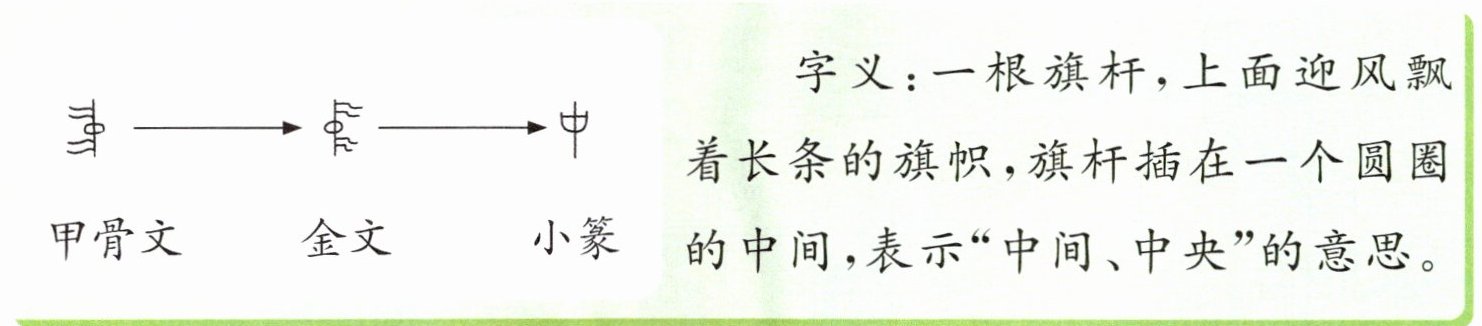 甲骨文 金文 小篆
字义:一根旗杆,上面迎风飘
着长条的旗帜,旗杆插在一个圆圈
的中间,表示“中间、中央”的意思。